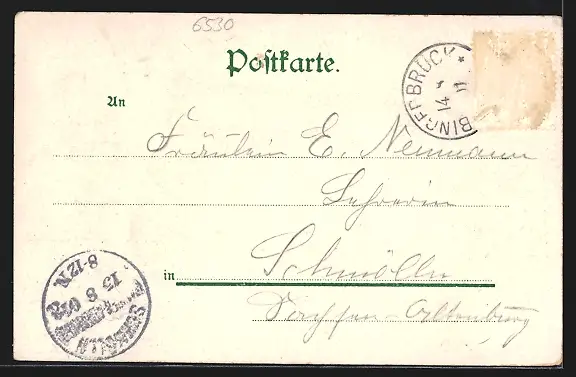 6530
Postkarte.
BINGERBRÜCK *
14
11
An
Fräulein E. Neumann
Lehrerin
in Schmölln
Sachsen-Altenburg
8-12 N.
15 8
SCHMÖLLN